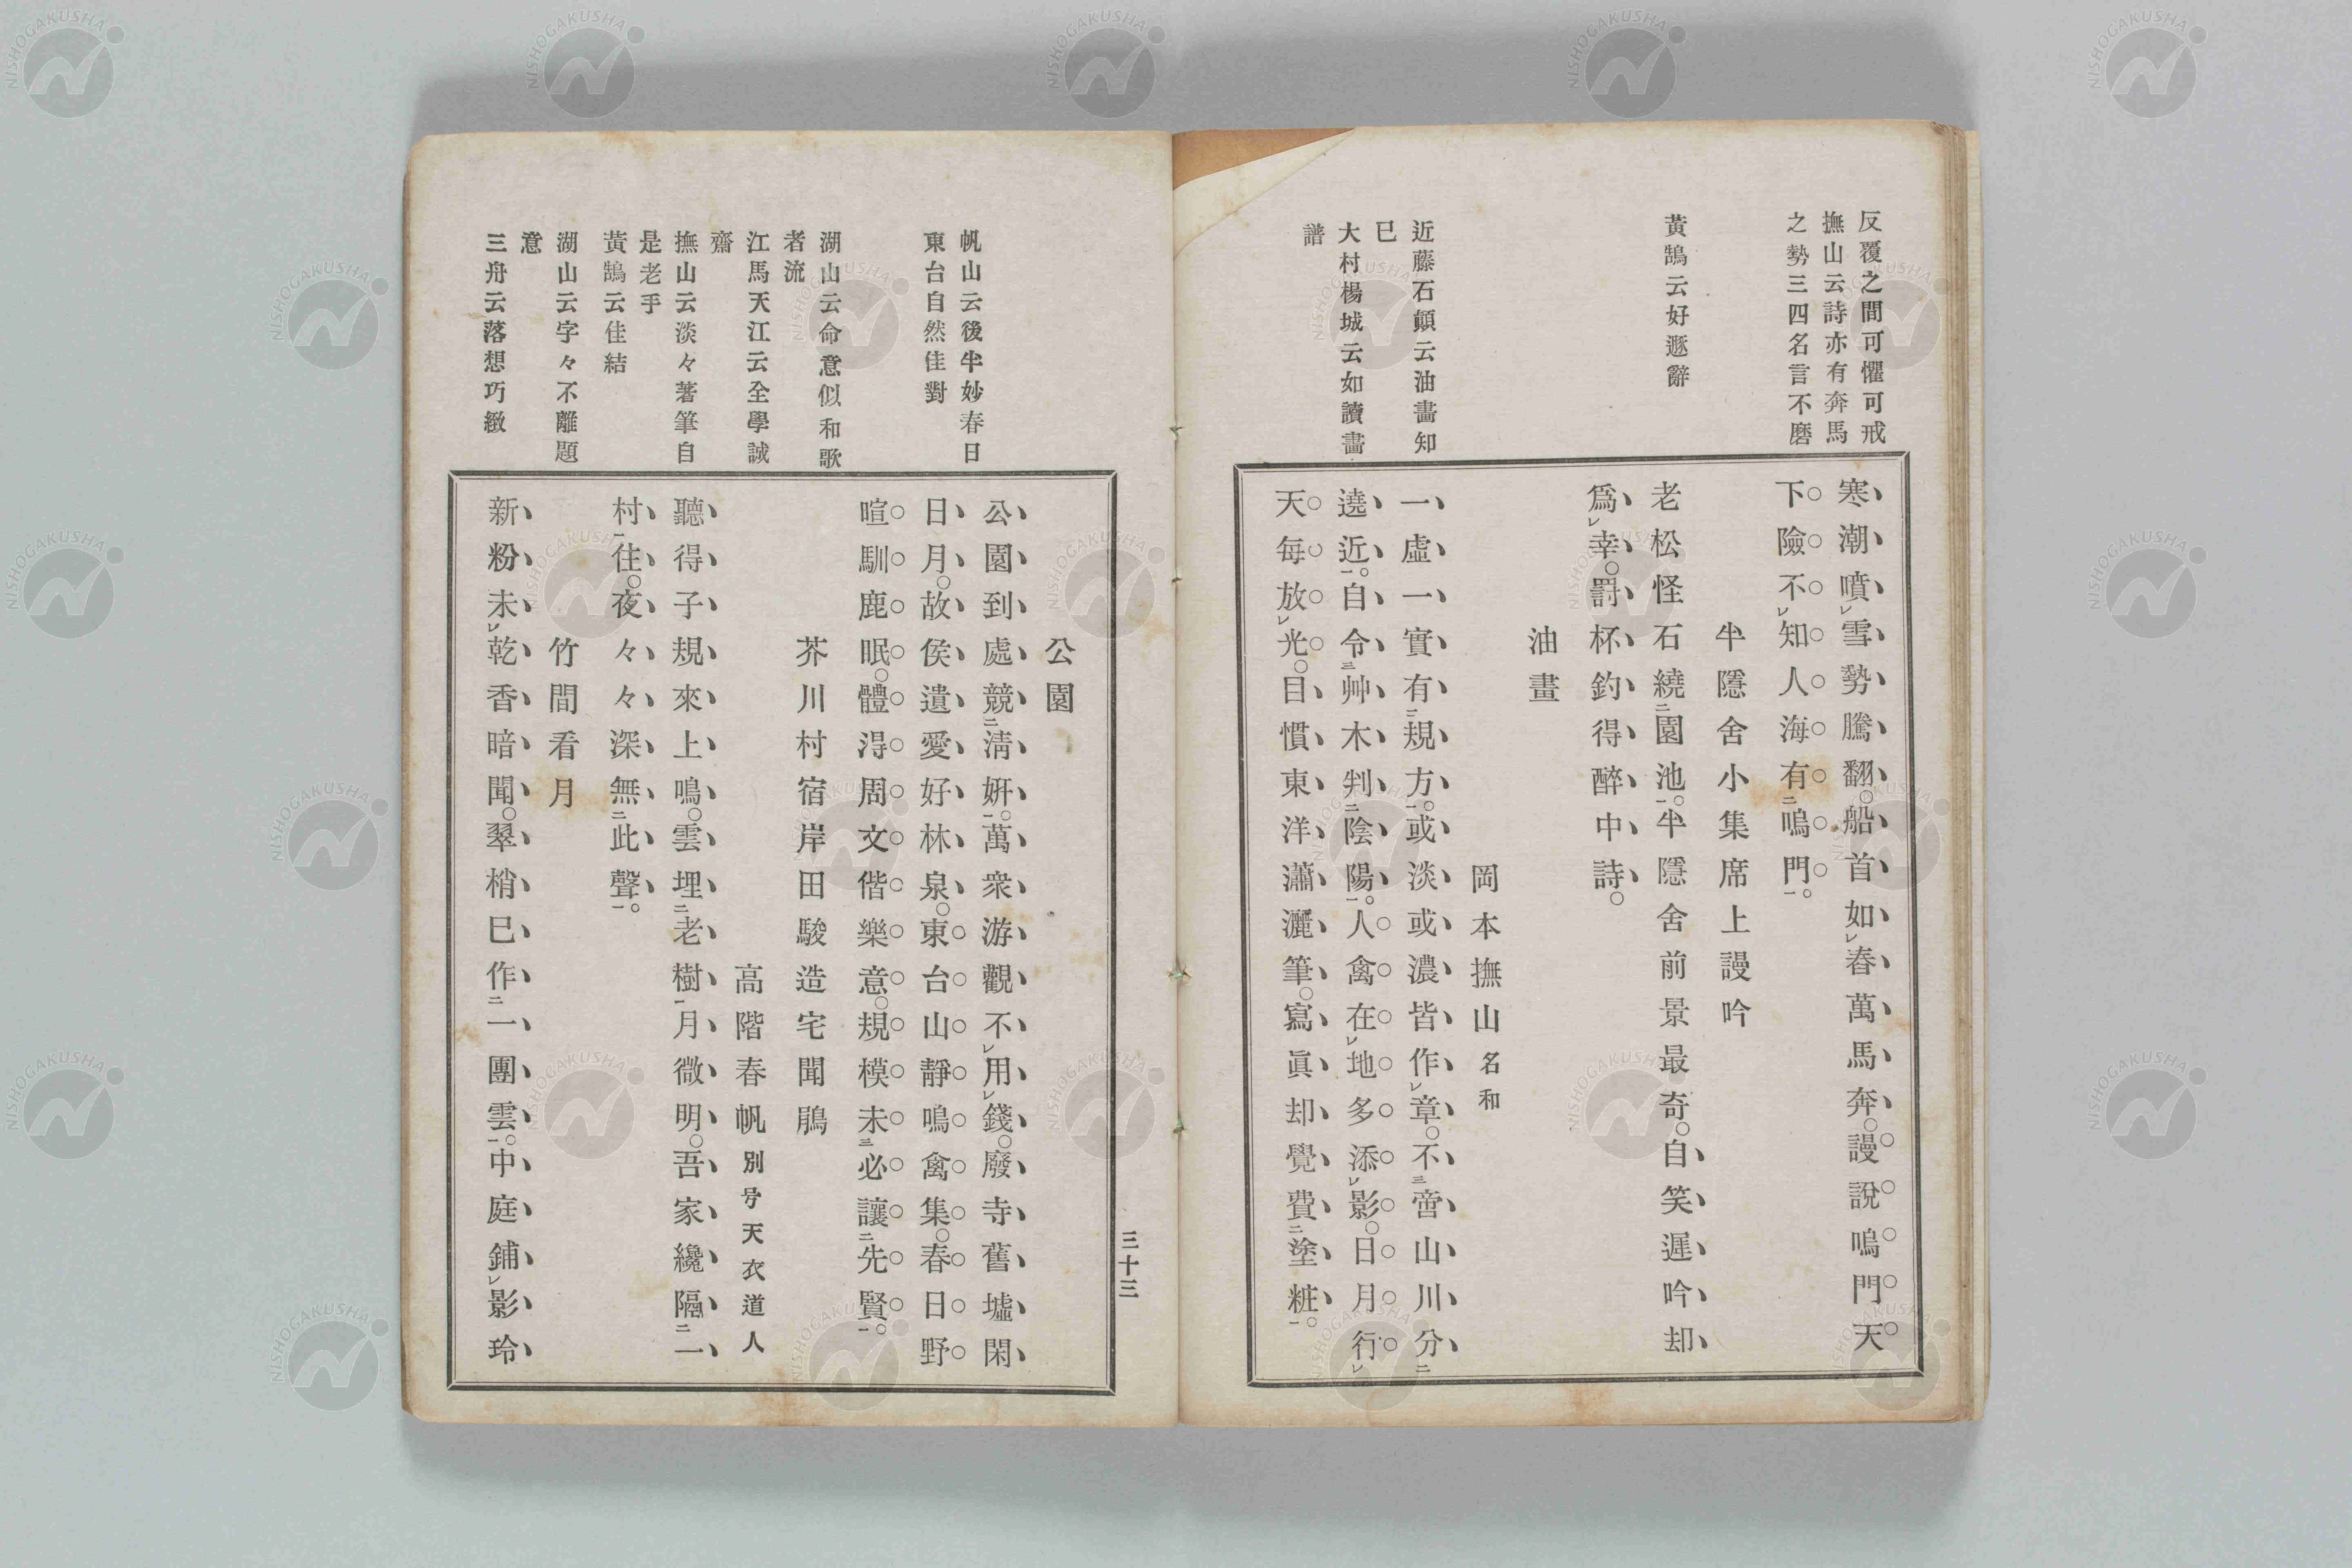 反覆之間可懼可戒
撫山云詩亦有奔馬
之勢三四名言不磨
黃鵠云好遯辭
近藤石顛云油畵知
巳
大村楊城云如讀畵
譜
寒潮噴雪勢騰翻。船首如舂萬馬奔。謾說鳴門天
下險不知人海有鳴門。
半隱舍小集席上謾吟
老松怪石繞園池。半隱舍前景最奇。自笑遲吟却
爲幸。罸杯釣得醉中詩。
油畫
岡本撫山名和
一虛一實有規方。或淡或濃皆作章。不啻山川分
遶近。自令艸木判陰陽。人禽在地多添影。日月行
天每放光。目慣東洋瀟灑筆。寫眞却覺費塗粧。
帆山云後半妙春日
東台自然佳對
湖山云命意似和歌
者流
江馬天江云全學誠
齋
撫山云淡々著筆自
是老手
黃鵠云佳結
湖山云字々不離題
意
三舟云落想巧緻
三十三
公園
公園到處競淸姸。萬衆游觀不用錢。廢寺舊墟閑
日月。故侯遺愛好林泉。東台山靜鳴禽集。春日野
喧馴鹿眠。體淂周文偕樂意。規模未必讓先賢。
芥川村宿岸田駿造宅聞鵑
高階春帆別号天衣道人
聽得子規來上鳴。雲埋老樹月微明。吾家纔隔一
村住。夜々々深無此聲。
竹間看月
新粉未乾香暗聞。翠梢巳作一團雲。中庭鋪影玲
NISHOGAKUSHA